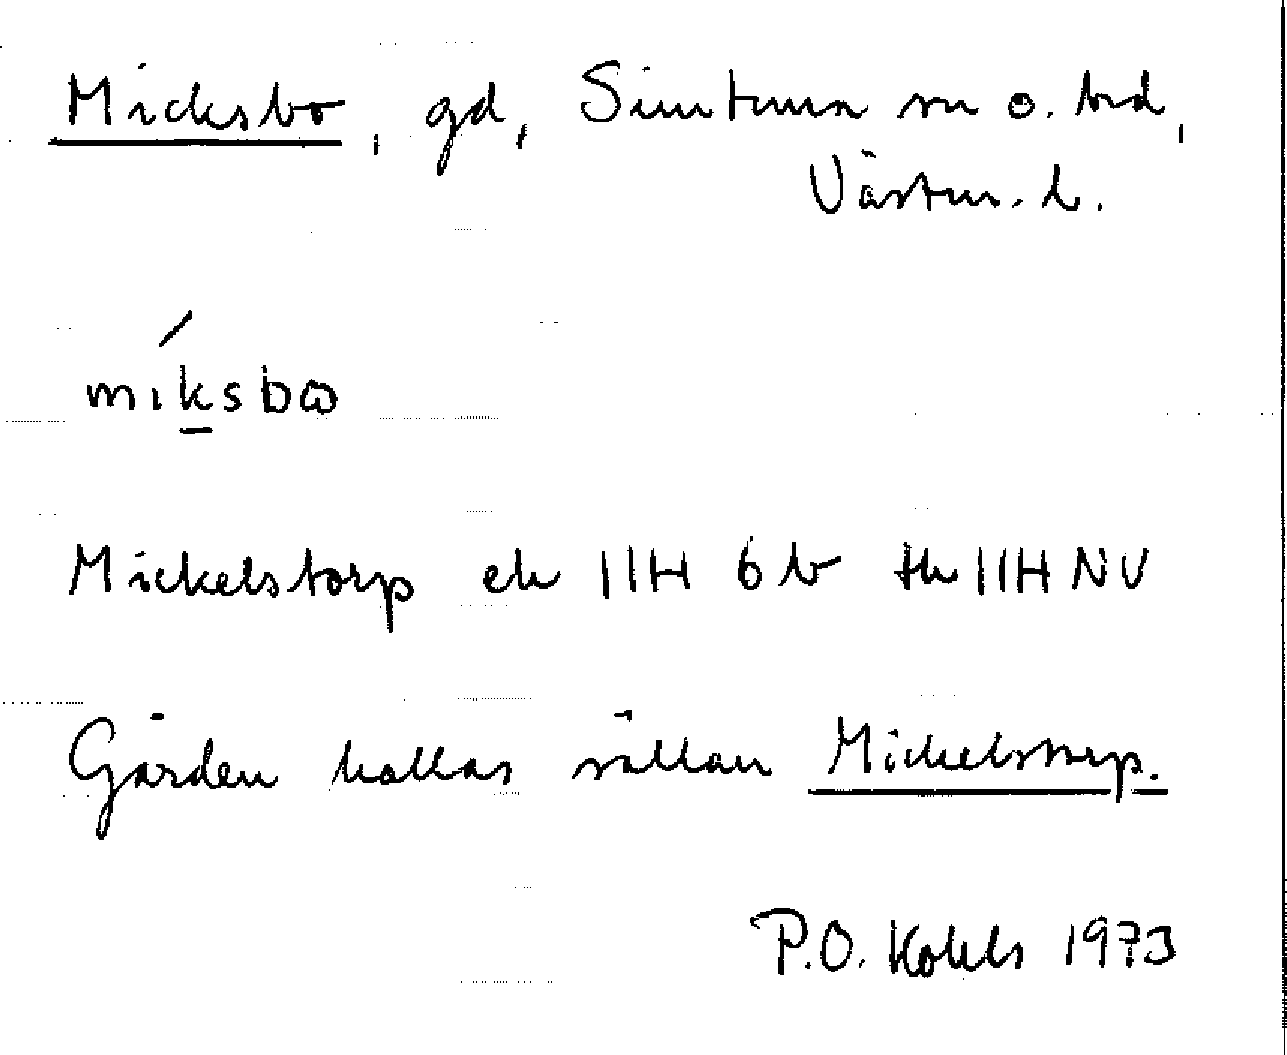 Micksbo, gd, Simtuna sn o. hd,
Västm. l.
míksbꙍ
Mickelstorp ek 11H 6 b tk 11H NV
Gården kallas sällan Mickelstorp.
P.O. 1973